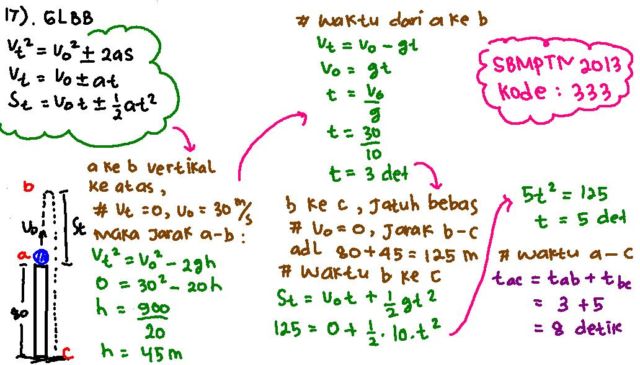 17). GLBB
Vt² = Vo² ± 2as
Vt = Vo ± at
St = Vo t ± 1/2 at²
b
Vb
St
a
80
c
a ke b vertikal
ke atas,
# Vt = 0, Vo = 30 m/s
maka jarak a-b :
Vt² = Vo² - 2gh
0 = 30² - 20h
h = 900/20
h = 45 m
# waktu dari a ke b
Vt = Vo - gt
Vo = gt
t = Vo/g
t = 30/10
t = 3 det
b ke c, jatuh bebas
# Vo = 0, jarak b-c
adl 80+45 = 125 m
# waktu b ke c
St = Vo t + 1/2 gt²
125 = 0 + 1/2 . 10. t²
SBMPTN 2013
Kode : 333
5t² = 125
t = 5 det
# waktu a - c
tac = tab + tbc
= 3 + 5
= 8 detik